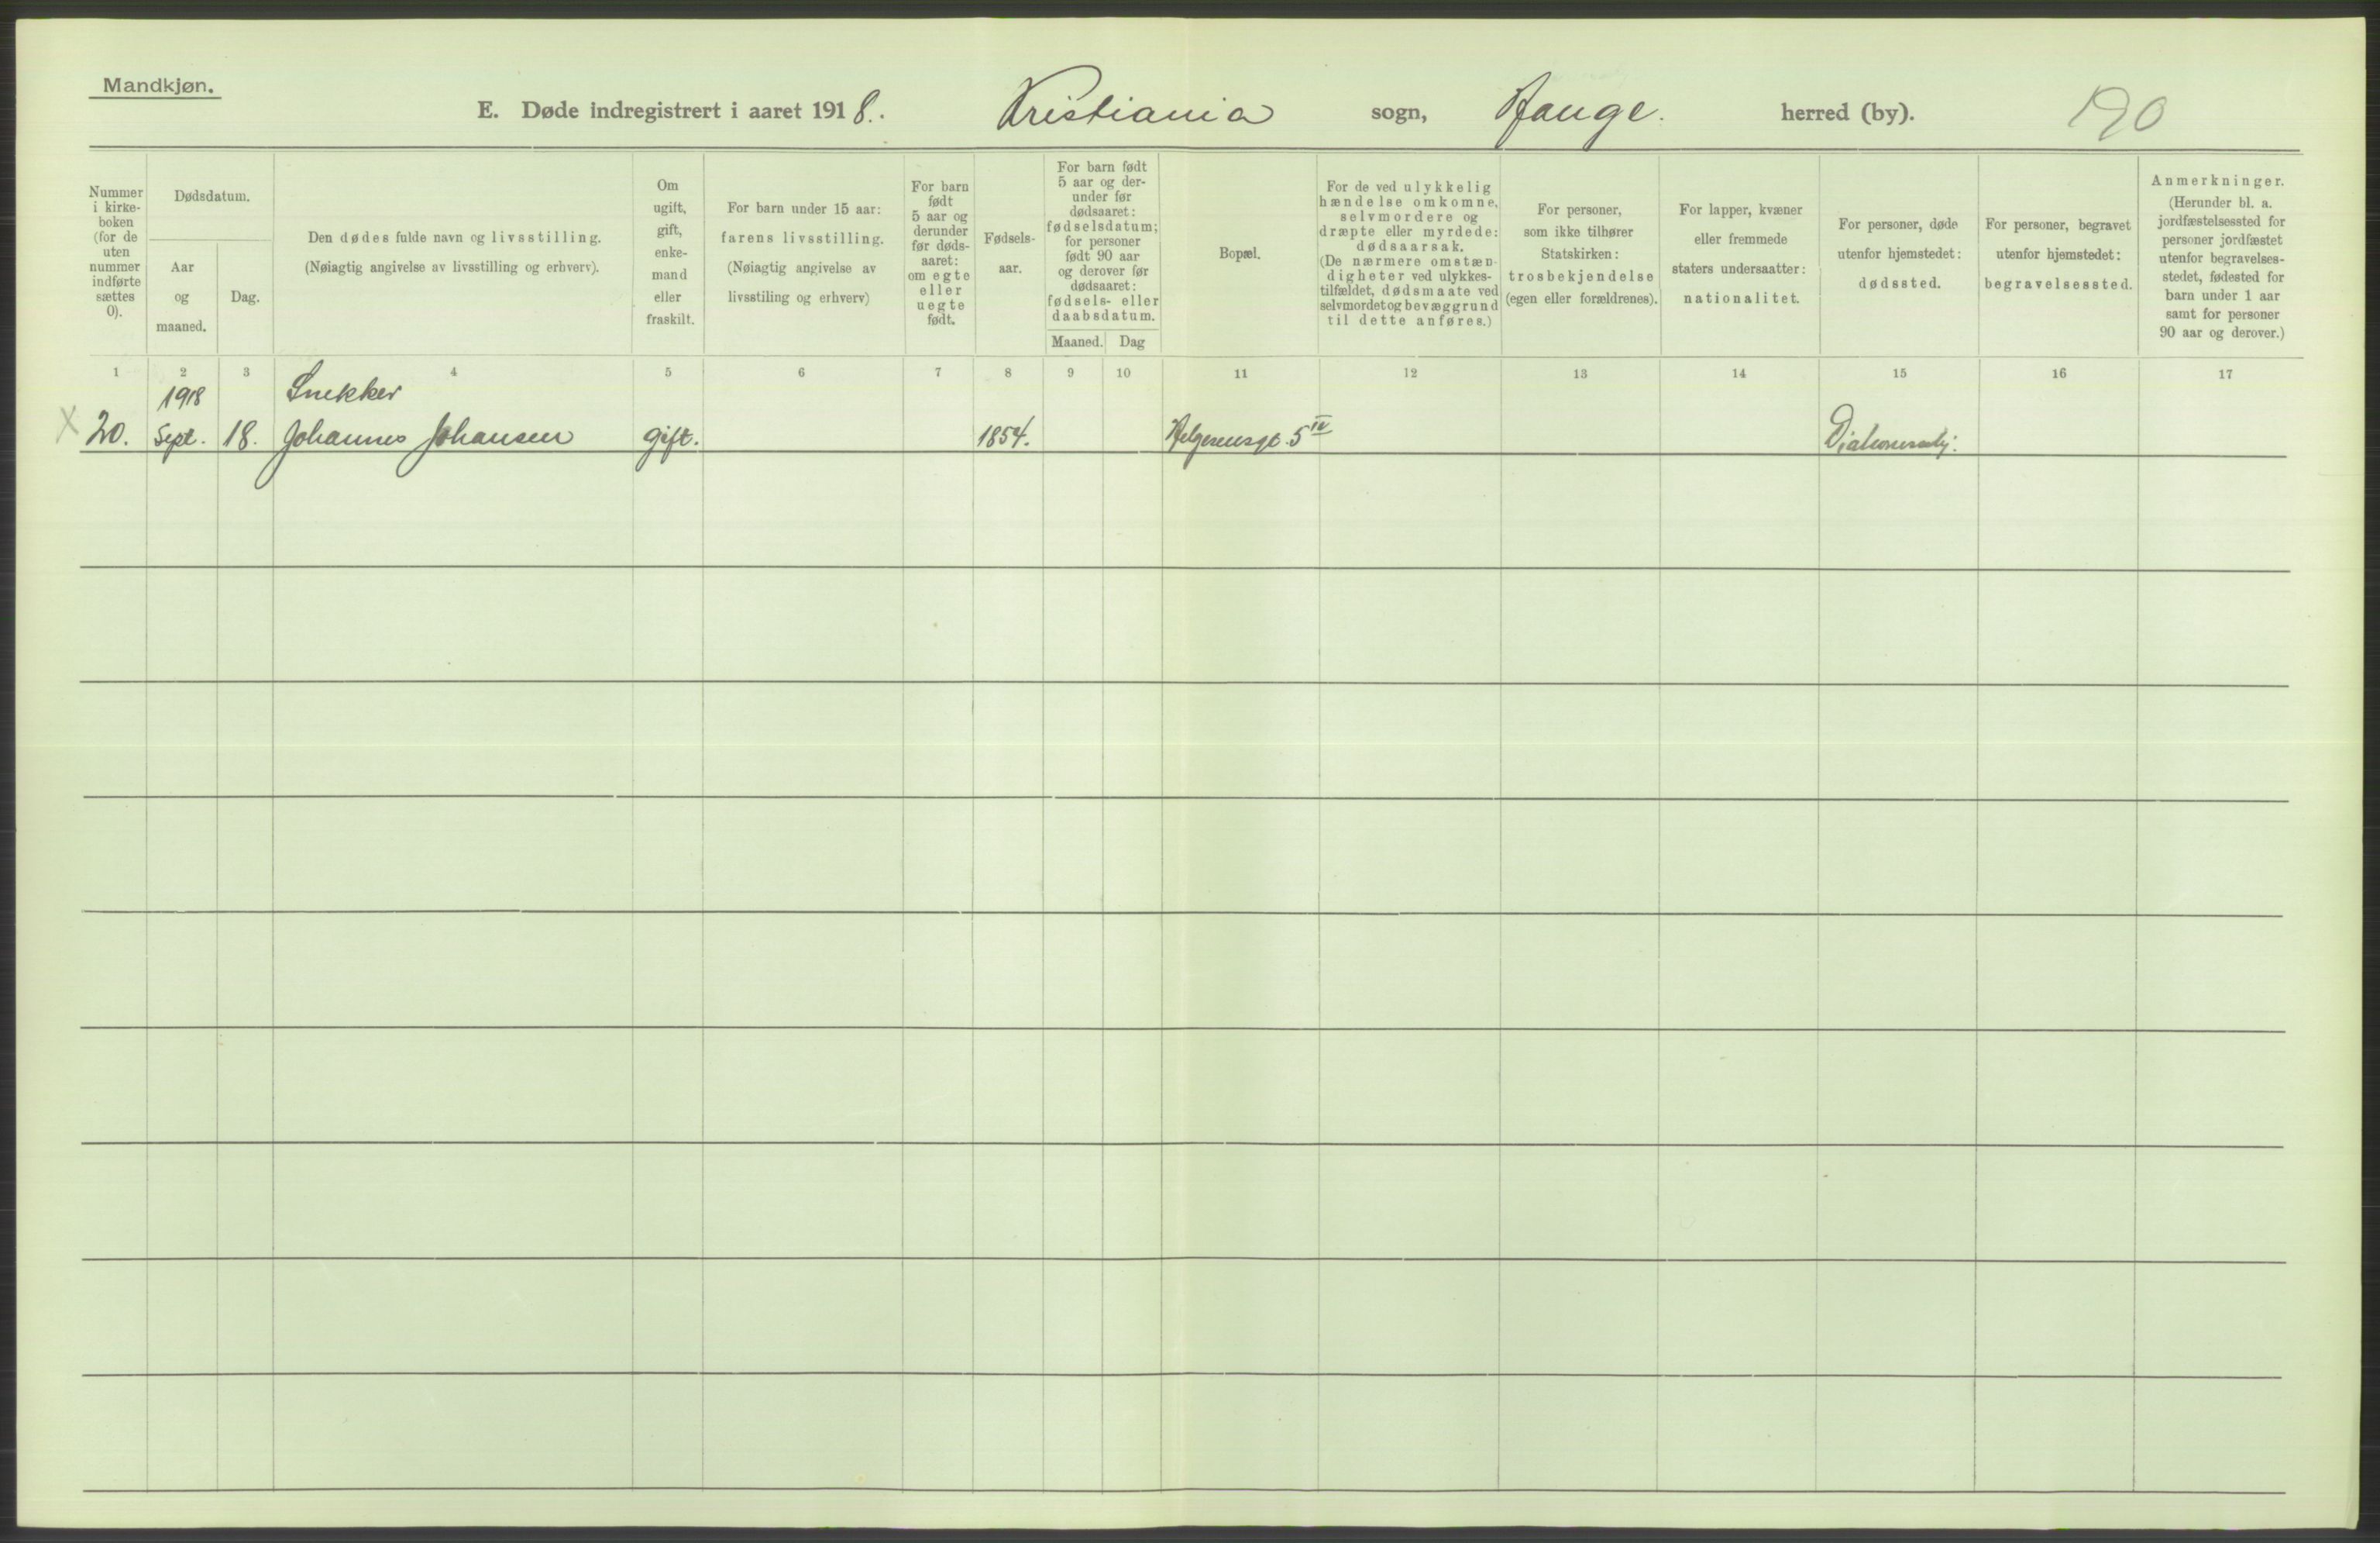 Mandkjøn.
E. Døde indregistrert i aaret 1918. Kristiania sogn, Hauge. herred (by). 190
Nummer i kirkeboken (for de uten nummer indførte sættes 0).
Dødsdatum.
Aar og maaned.
Dag.
Den dødes fulde navn og livsstilling.
(Nøiagtig angivelse av livsstilling og erhverv).
Om ugift, gift, enkemand eller fraskilt.
For barn under 15 aar:
farens livsstilling.
(Nøiagtig angivelse av
livsstiling og erhverv)
For barn født 5 aar og derunder før dødsaaret: om egte eller uegte født.
Fødselsaar.
For barn født 5 aar og derunder før dødsaaret: fødselsdatum; for personer født 90 aar og derover før dødsaaret: fødsels- eller daabsdatum.
Maaned. Dag
Bopæl.
For de ved ulykkelig hændelse omkomne, selvmordere og dræpte eller myrdede: dødsaarsak.
(De nærmere omstændigheter ved ulykkestilfældet, dødsmaate ved selvmordet og bevæggrund til dette anføres.)
For personer, som ikke tilhører Statskirken: trosbekjendelse (egen eller forældrenes).
For lapper, kvæner eller fremmede staters undersaatter: nationalitet.
For personer, døde utenfor hjemstedet: dødssted.
For personer, begravet utenfor hjemstedet: begravelsessted.
Anmerkninger.
(Herunder bl. a. jordfæstelsessted for personer jordfæstet utenfor begravelsesstedet, fødested for barn under 1 aar samt for personer 90 aar og derover.)
1 2 3 4 5 6 7 8 9 10 11 12 13 14 15 16 17
1918 Snekker
X 20. Sept. 18. Johannes Johansen gift. 1854. Helgesensgt. 5 IV